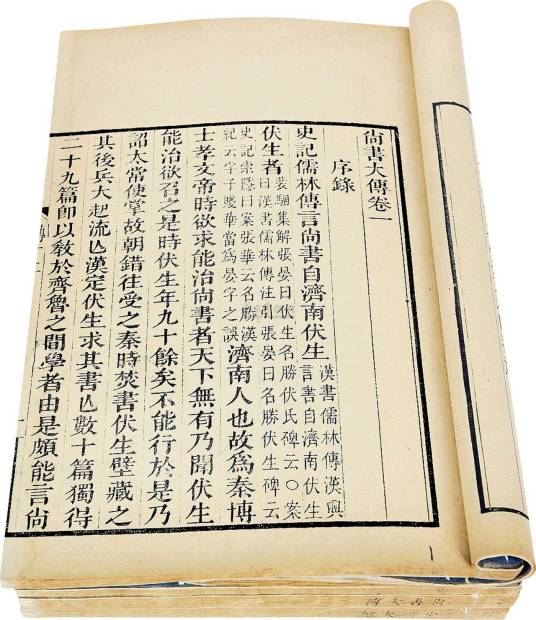 尚書大傳卷一
序錄
史記儒林傳言尚書自濟南伏生漢書儒林傳漢興言書自濟南伏生
伏生者裴駰集解張晏曰伏生名勝伏氏碑云○案曰漢書儒林傳注引張晏曰名勝伏生碑云
史記索隱曰案張華云名勝漢紀云字子㬱華當爲晏字之誤濟南人也故爲秦博
士孝文帝時欲求能治尚書者天下無有乃聞伏生
能治欲召之是時伏生年九十餘矣不能行於是乃
詔太常使掌故朝錯往受之秦時焚書伏生壁藏之
其後兵大起流亾漢定伏生求其書亾數十篇獨得
二十九篇卽以敎於齊魯之間學者由是頗能言尚